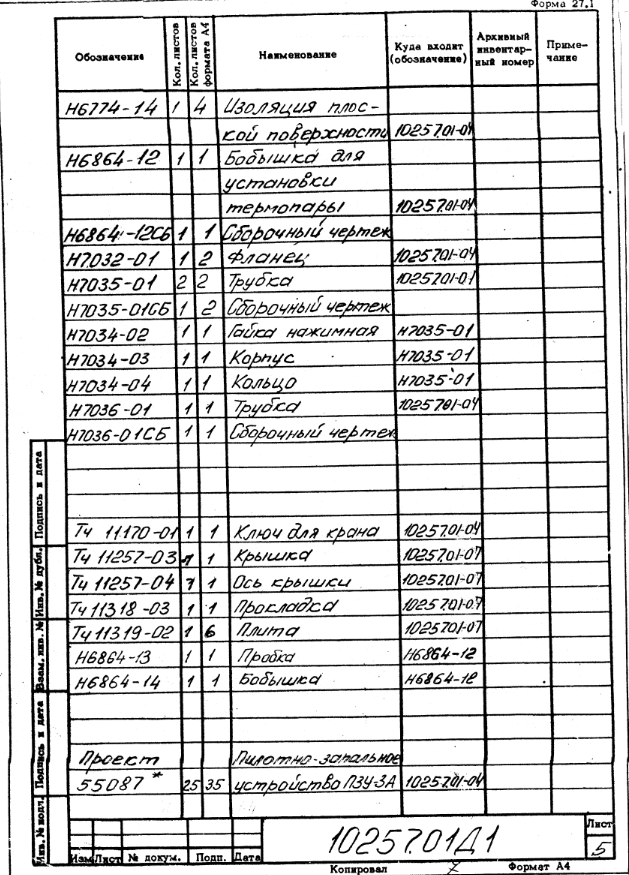 Форма 27.1
Обозначение Кол. листов Кол. листов формата А4 Наименование Куда входит (обозначение) Архивный инвентарный номер Примечание
Н6774-14 1 4 Изоляция плос-
кой поверхности 1025701-04
Н6864-12 1 1 Бобышка для
установки
термопары 1025701-04
Н6864-12СБ 1 1 Сборочный чертеж
Н7032-01 1 2 Фланец 1025701-04
Н7035-01 2 2 Трубка 1025701-01
Н7035-01СБ 1 2 Сборочный чертеж
Н7034-02 1 1 Гайка нажимная Н7035-01
Н7034-03 1 1 Корпус Н7035-01
Н7034-04 1 1 Кольцо Н7035-01
Н7036-01 1 1 Трубка 1025701-04
Н7036-01СБ 1 1 Сборочный чертеж
Тч 11170-01 1 1 Ключ для крана 1025701-04
Тч 11257-03 1 1 Крышка 1025701-07
Тч 11257-04 1 1 Ось крышки 1025701-07
Тч 11318-03 1 1 Прокладка 1025701-07
Тч 11319-02 1 6 Плита 1025701-07
Н6864-13 1 1 Пробка Н6864-12
Н6864-14 1 1 Бобышка Н6864-12
Проект Пилотно-запальное
55087* 25 35 устройство ПЗУ-3А 1025701-04
Инв. № подл. Подпись и дата Взам. инв. № Инв. № дубл. Подпись и дата
Изм Лист № докум. Подп. Дата
1025701Д1
Лист
5
Копировал Формат А4